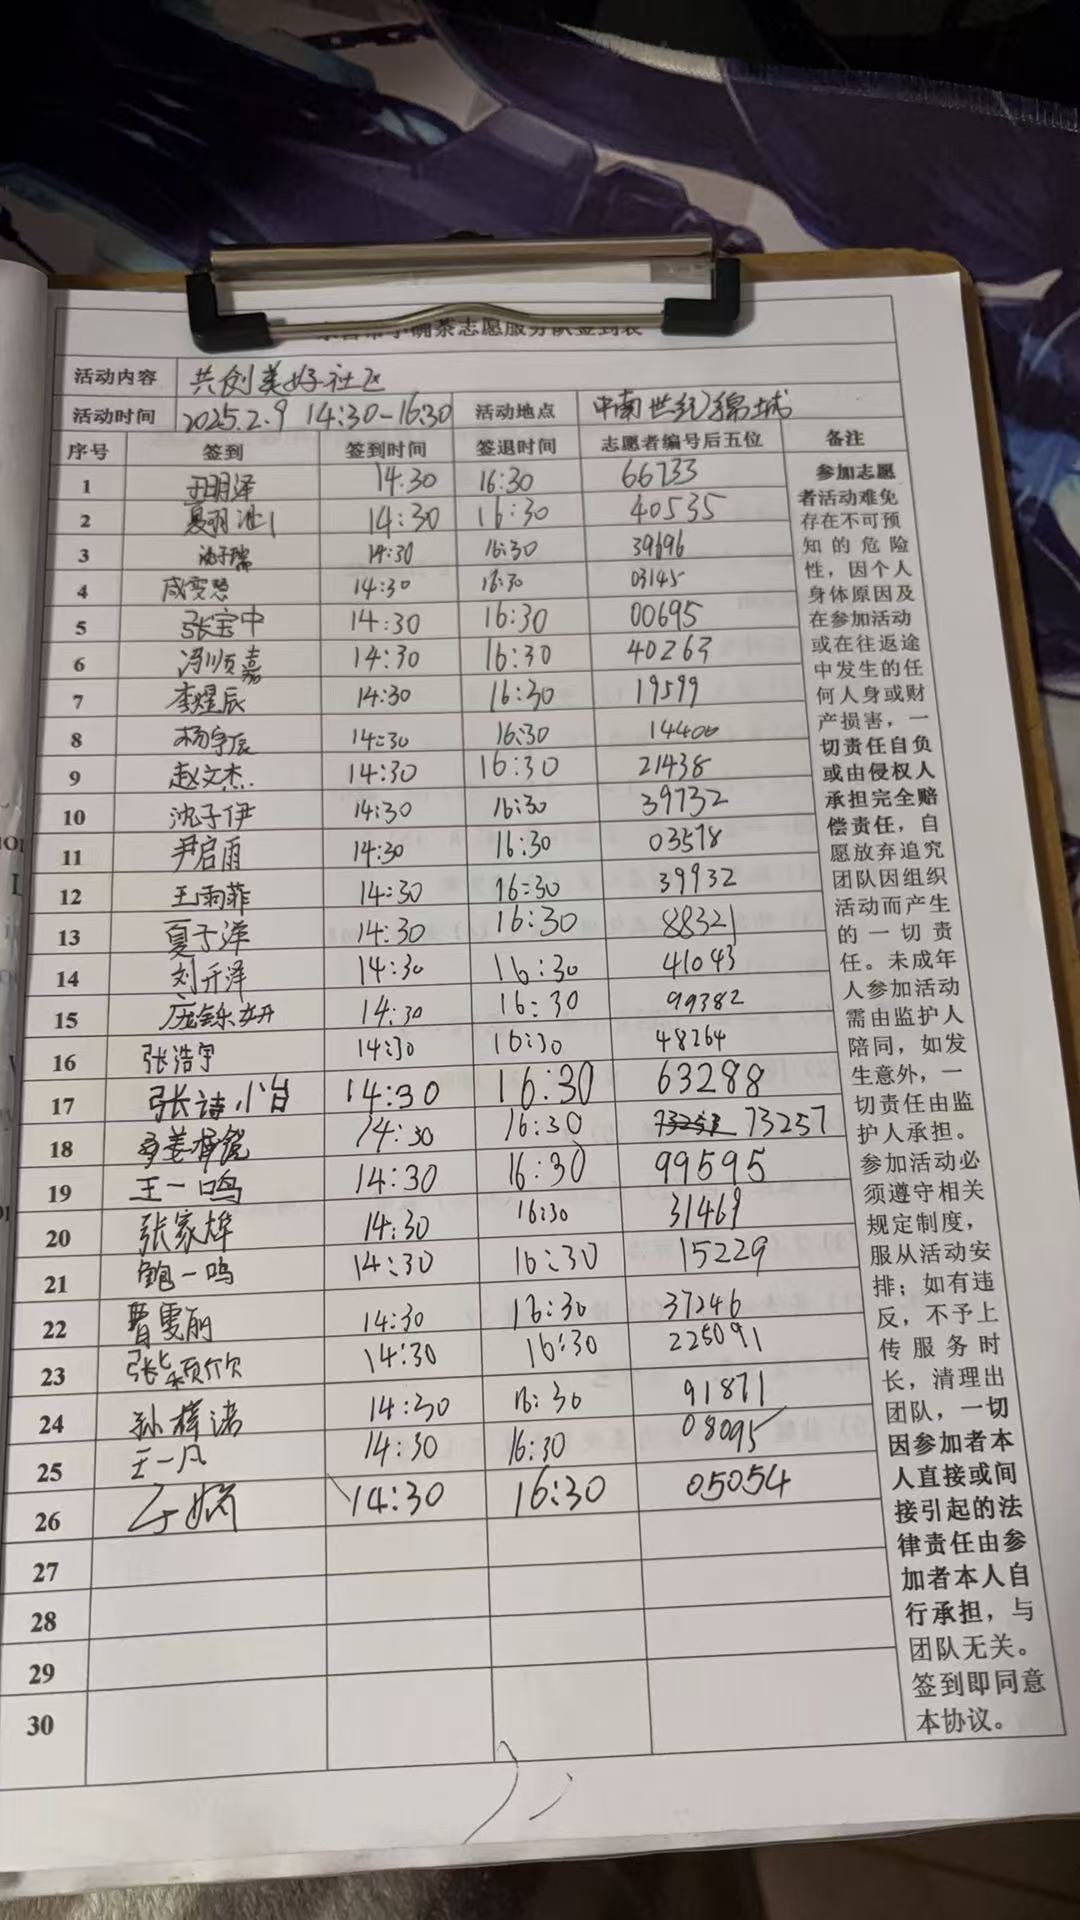 小确茶志愿服务队签到表
活动内容 共创美好社区
活动时间 2025.2.9 14:30-16:30 活动地点 中南世纪锦城
序号 签到 签到时间 签退时间 志愿者编号后五位 备注
1 14:30 16:30 66733
2 14:30 16:30 40535
3 沈子瑞 14:30 16:30 39696
4 14:30 16:30 03145
5 张宝中 14:30 16:30 00695
6 冯顺嘉 14:30 16:30 40263
7 李煜辰 14:30 16:30 19599
8 杨宇辰 14:30 16:30 14400
9 赵文杰 14:30 16:30 21438
10 沈子伊 14:30 16:30 39732
11 尹启雨 14:30 16:30 03578
12 王雨菲 14:30 16:30 39932
13 夏子泽 14:30 16:30 88321
14 刘开泽 14:30 16:30 41043
15 庞铄妍 14:30 16:30 99382
16 张浩宇 14:30 16:30 48264
17 张诗怡 14:30 16:30 63288
18 14:30 16:30 73257
19 王一鸣 14:30 16:30 99595
20 张家烨 14:30 16:30 31469
21 鲍一鸣 14:30 16:30 15229
22 曹雯丽 14:30 16:30 37246
23 张颖欣 14:30 16:30 225091
24 孙梓诺 14:30 16:30 91871
25 王一凡 14:30 16:30 08095
26 14:30 16:30 05054
27
28
29
30
参加志愿
者活动难免
存在不可预
知的危险
性，因个人
身体原因及
在参加活动
或在往返途
中发生的任
何人身或财
产损害，一
切责任自负
或由侵权人
承担完全赔
偿责任，自
愿放弃追究
团队因组织
活动而产生
的一切责
任。未成年
人参加活动
需由监护人
陪同，如发
生意外，一
切责任由监
护人承担。
参加活动必
须遵守相关
规定制度，
服从活动安
排；如有违
反，不予上
传服务时
长，清理出
团队，一切
因参加者本
人直接或间
接引起的法
律责任由参
加者本人自
行承担，与
团队无关。
签到即同意
本协议。